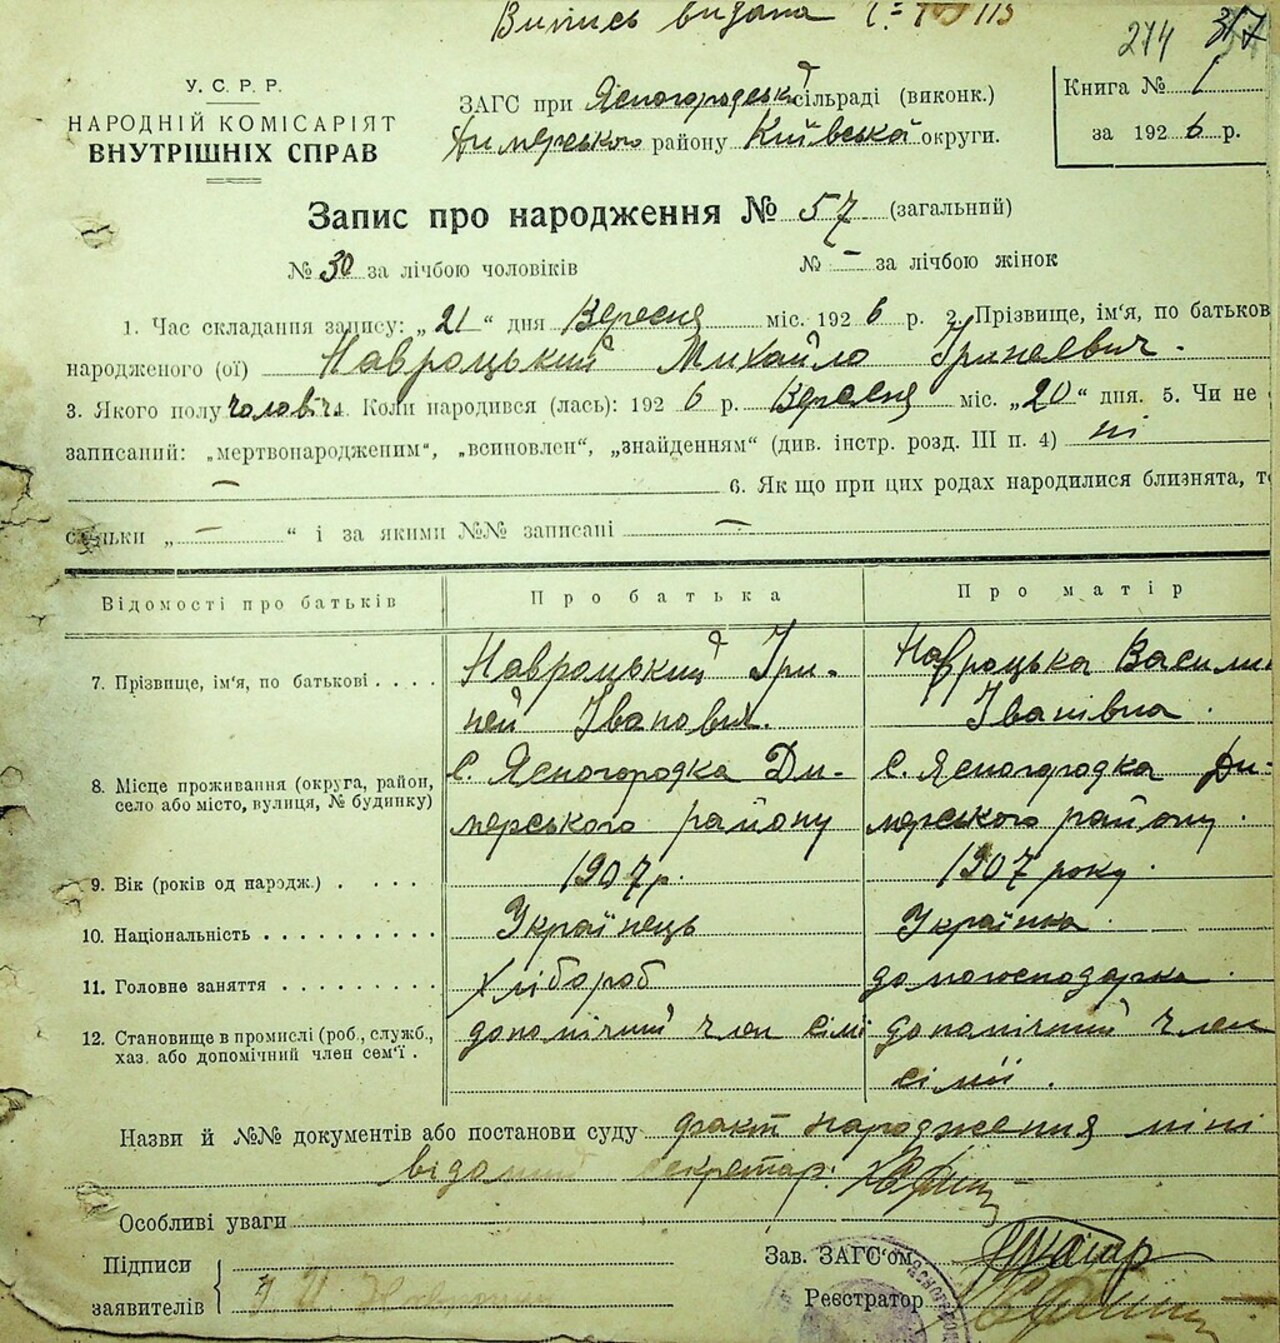 Випись видана
214 317
У. С. Р. Р.
НАРОДНІЙ КОМІСАРІЯТ
ВНУТРІШНІХ СПРАВ
ЗАГС при Ясногородській сільраді (виконк.)
Димерського району Київської округи.
Книга № 1
за 1926 р.
Запис про народження № 57 (загальний)
№ 30 за лічбою чоловіків № – за лічбою жінок
1. Час складання запису: „21“ дня Вересня міс. 1926 р. 2. Прізвище, ім'я, по батькові
народженого (ої) Навроцький Михайло Іринеєвич.
3. Якого полу чоловіч. Коли народився (лась): 1926 р. Вересня міс. „20“ дня. 5. Чи не
записаний: „мертвонародженим“, „всиновлен“, „знайденням“ (див. інстр. розд. III п. 4) ні
– 6. Як що при цих родах народилися близнята, то
скільки „ – “ і за якими №№ записані –
Відомості про батьків Про батька Про матір
7. Прізвище, ім'я, по батькові . . . . Навроцький Іри-
ней Іванович. Навроцька Васили
Іванівна.
8. Місце проживання (округа, район,
село або місто, вулиця, № будинку) с. Ясногородка Ди-
мерського району с. Ясногородка Ди-
мерського району.
9. Вік (років од народж.) . . . . 1907 р. 1907 року.
10. Національність . . . . . . . . . . Українець Українка.
11. Головне заняття . . . . . . . . . Хлібороб домогосподарка.
12. Становище в промислі (роб., служб.,
хаз. або допомічний член сем'ї . допомічний член сімї допомічний член
сімїї.
Назви й №№ документів або постанови суду факт народження міні
відомий секретар:
Особливі уваги
Підписи
заявителів
Зав. ЗАГС'ом
Реєстратор